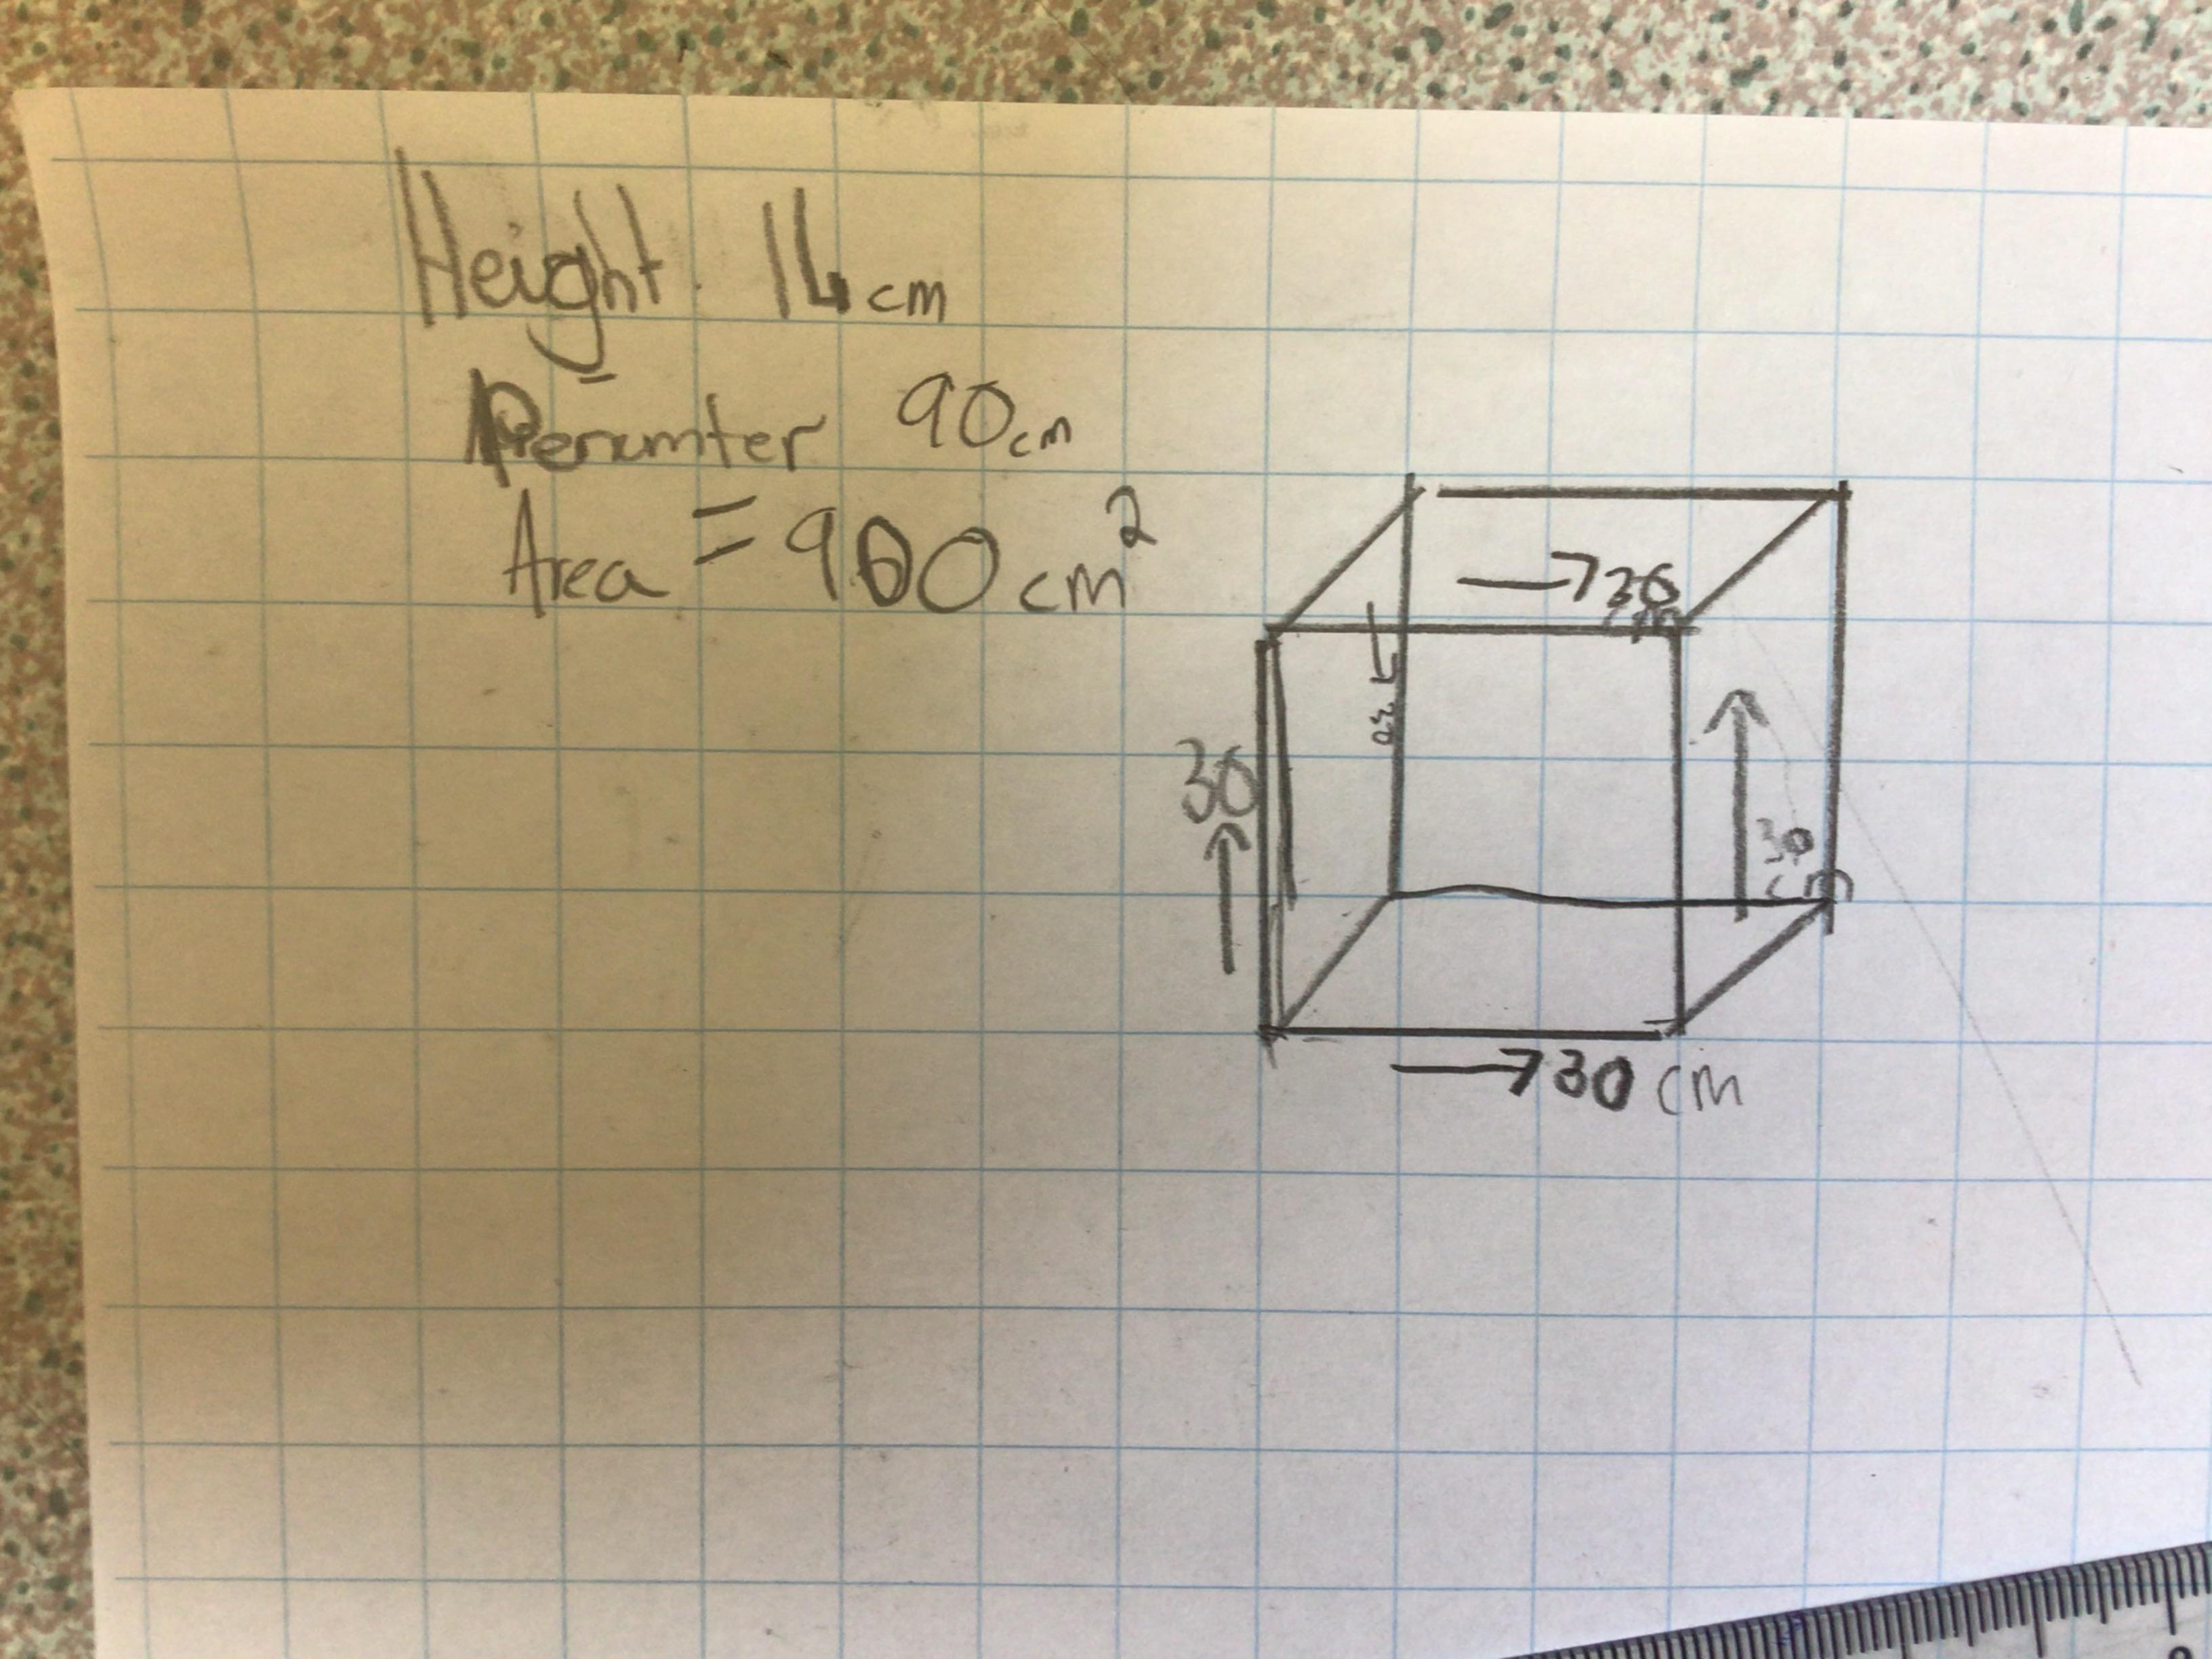 Height 14cm
Perumter 90cm
Area = 900cm²
→ 30
cm
30
30
30
cm
→ 30 cm